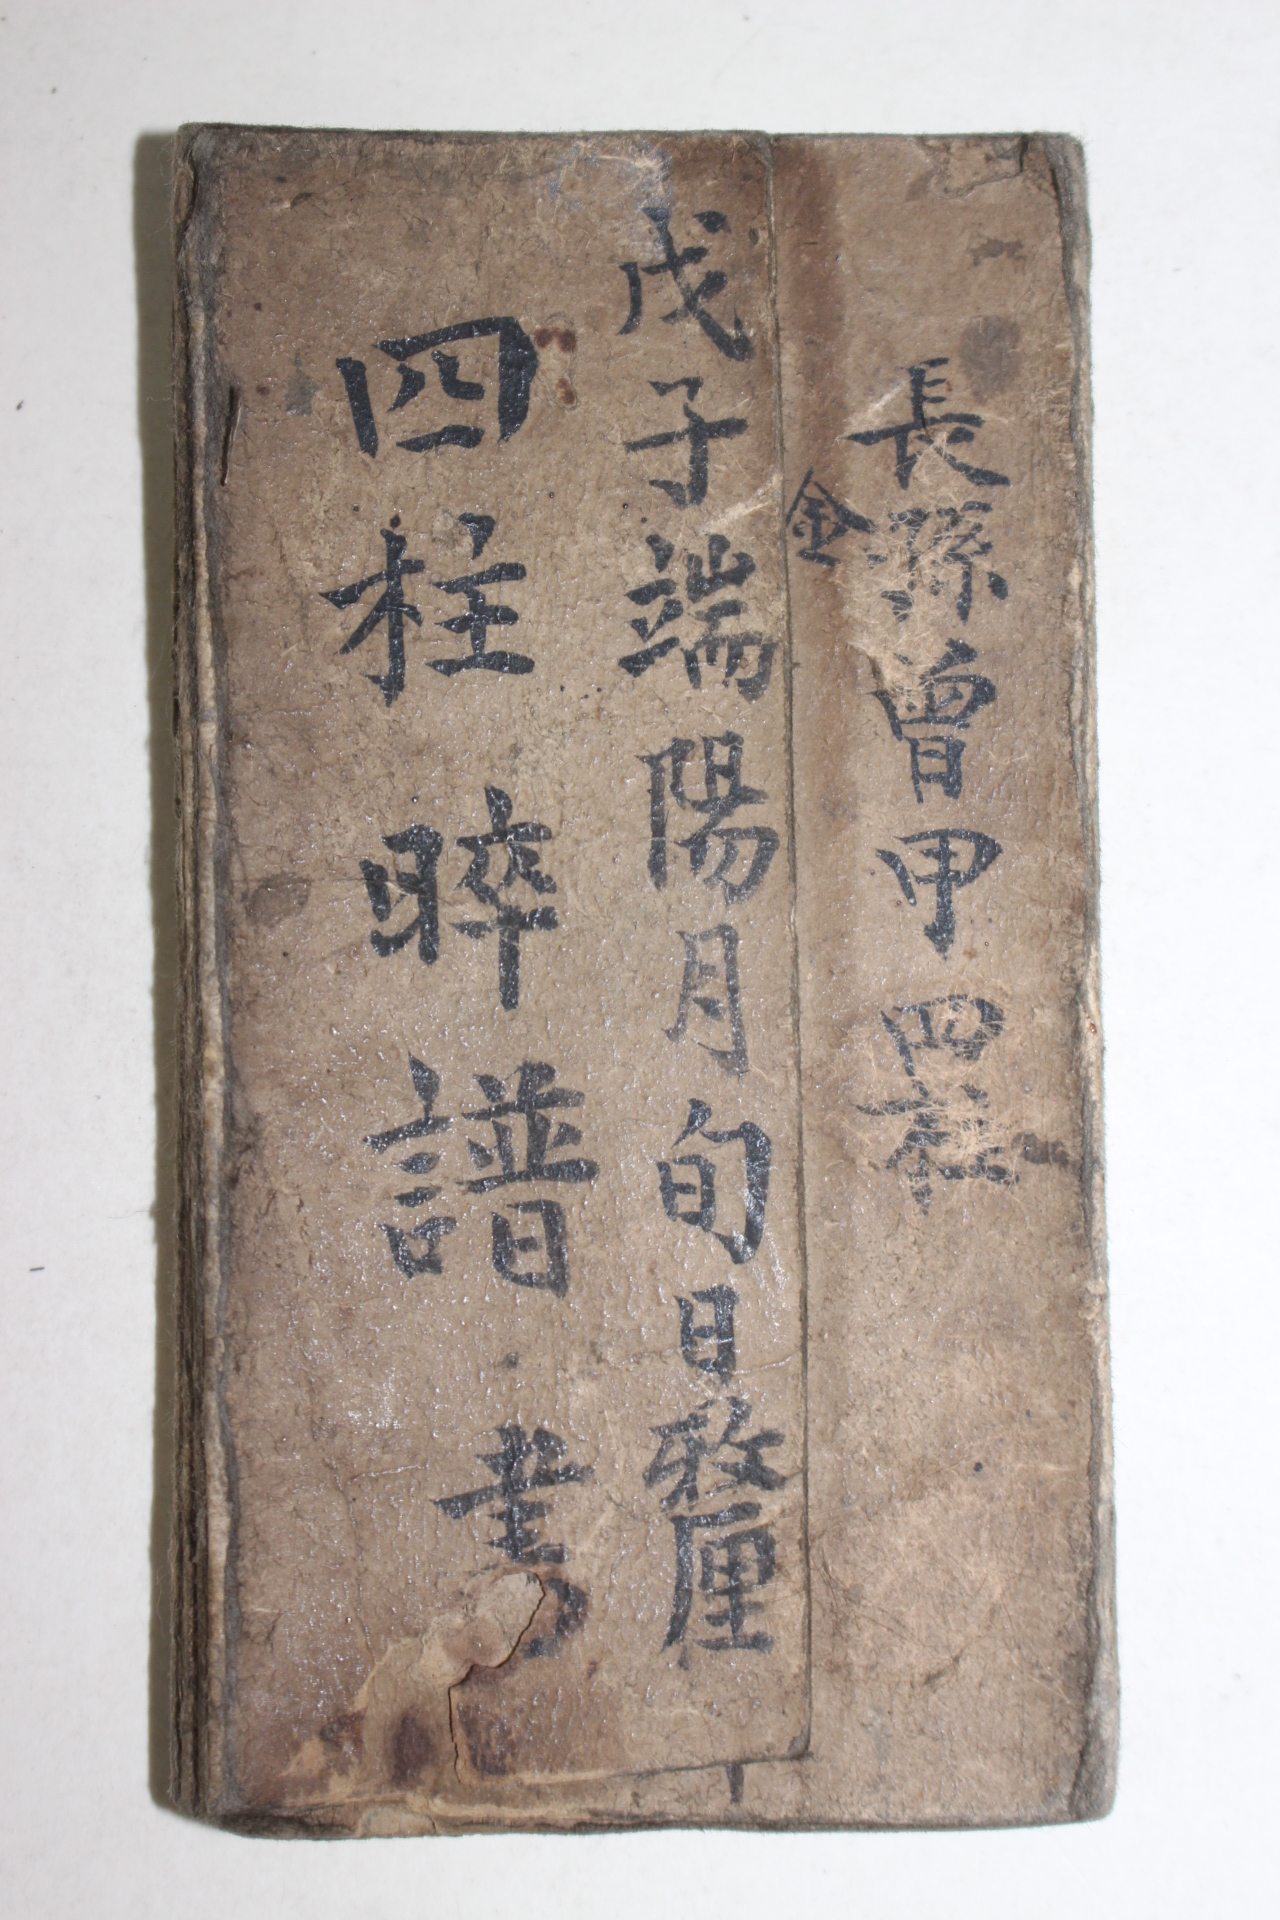 長孫曾甲四柱
金
戊子端陽月旬日釐
四柱晬譜書